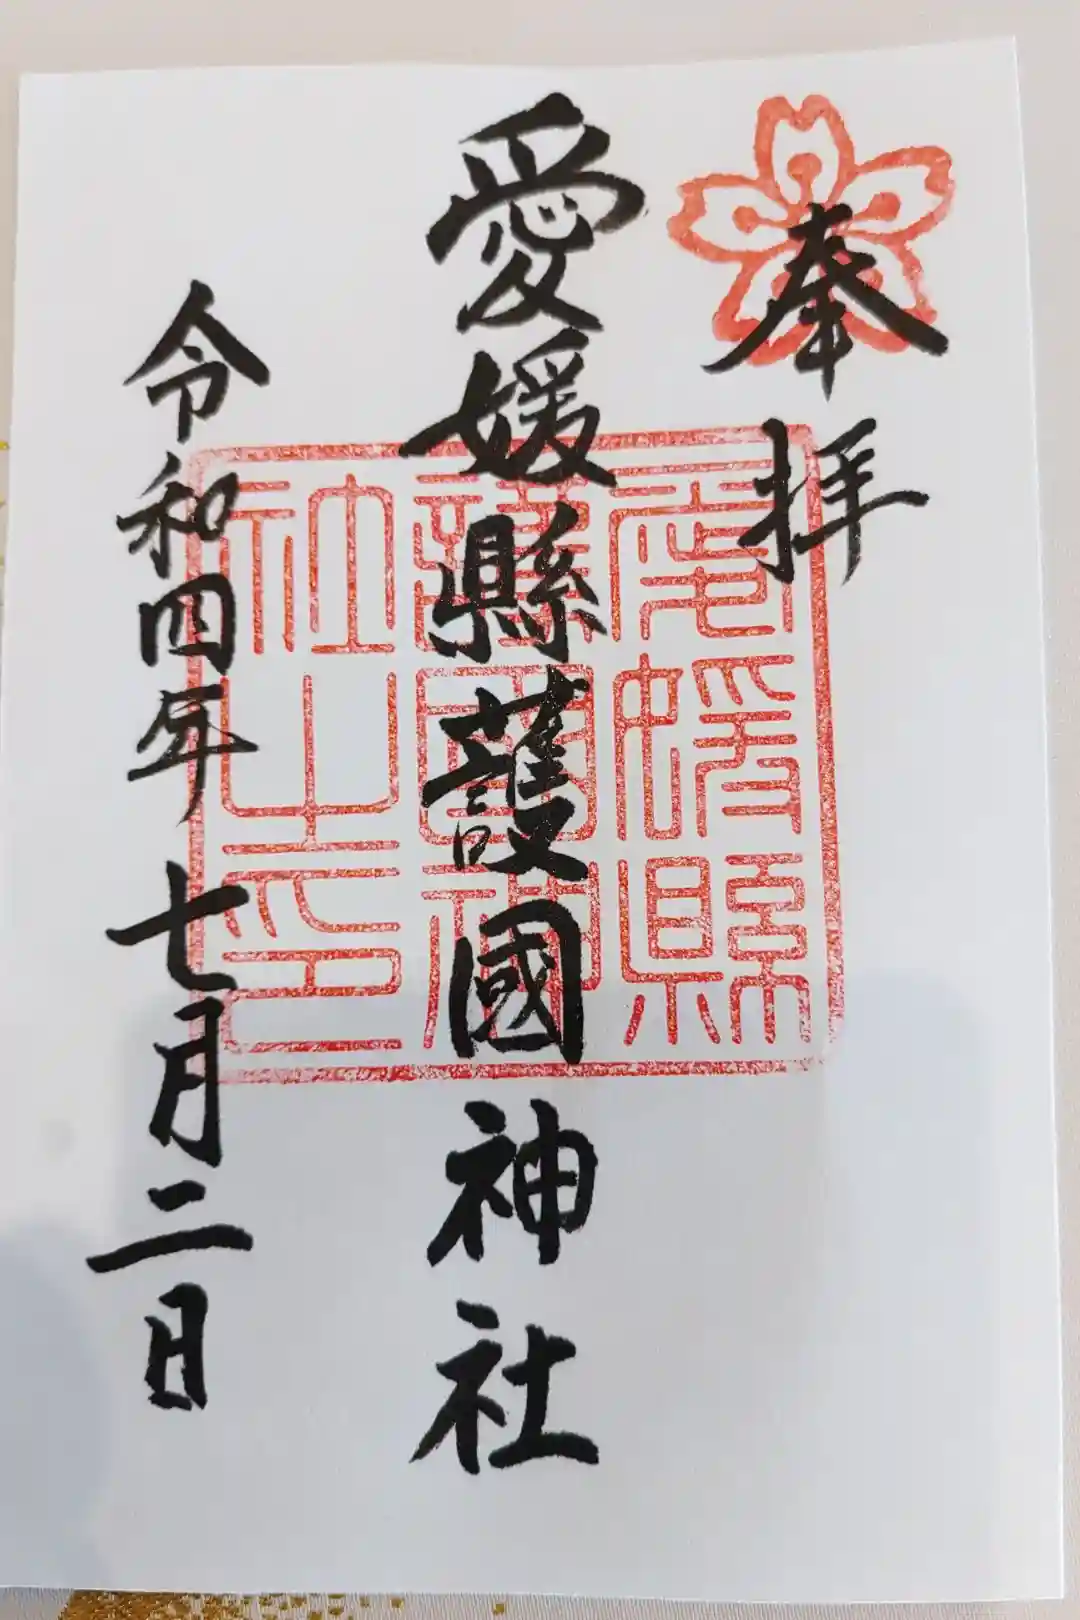 奉拝
愛媛縣護國神社
愛媛縣
護國神
社之印
令和四年七月二日